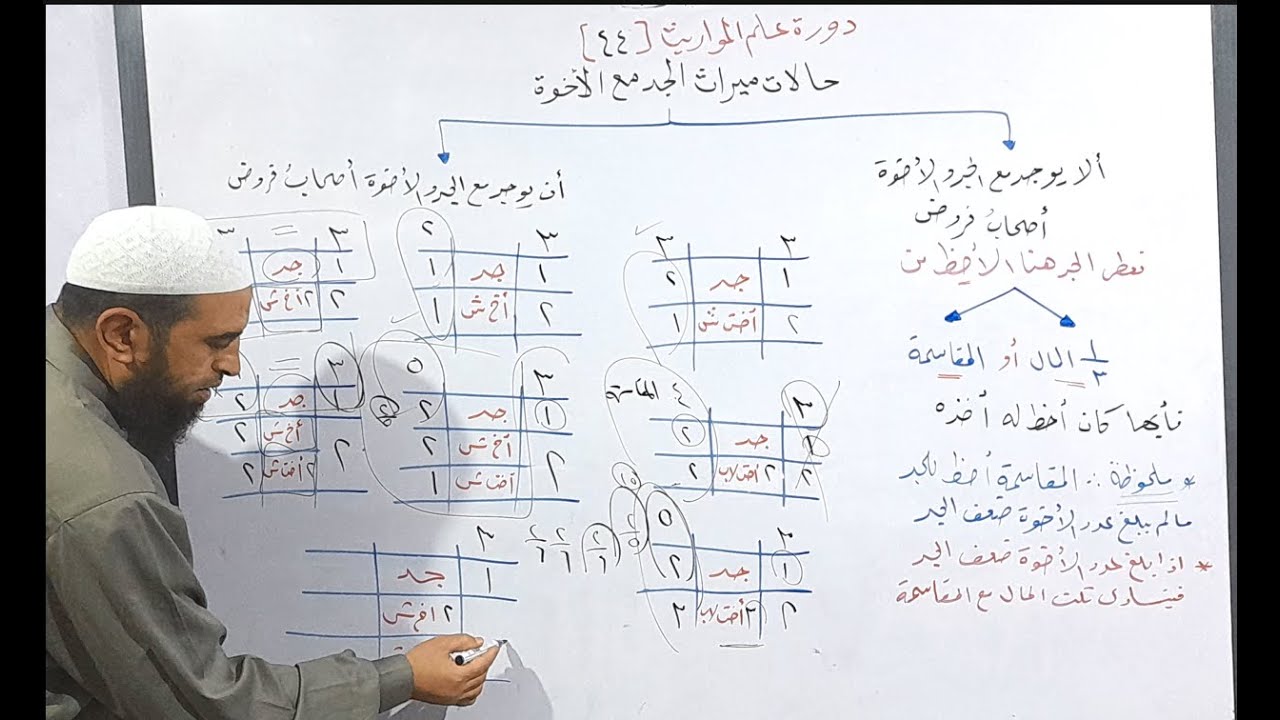 دورة علم المواريث [٤٤]
حالات ميراث الجد مع الأخوة
ألا يوجد مع الجد والأخوة
أصحابُ فروض
نعطي الجد هنا الأحظ من
١/٣ المال أو المقاسمة
فأيها كان أحظ له أخذه
* ملحوظة :. المقاسمة أحظ للجد
مالم يبلغ عدد الأخوة ضعف الجد
* اذا بلغ عدد الأخوة ضعف الجد
فيتساوى ثلث المال مع المقاسمة
أن يوجد مع الجد والأخوة أصحابُ فروض
٣ ٣
١ جد ٢
٢ أخت ش ١
٣ ٤ المقاسمة
١ جد ٢
٢ ٢ أخت لاب ٢
٣ ٥
١ جد ٢
٢ ٣ أخت لاب ٣
٢/٥ ٢/٦ ٢/٦ ٢/٦
٣ ٢
١ جد ١
٢ أخ ش ١
٣ ٥
١ جد ٢
٢ أخ ش ٢
أخت ش ١
٣
١ جد
٢ اخ ش
٣ = ٣
١ جد
٢ ٢ أخ ش
٣ =
١ جد ٢
٢ أخ ش ٢
٢ أخت ش ٢